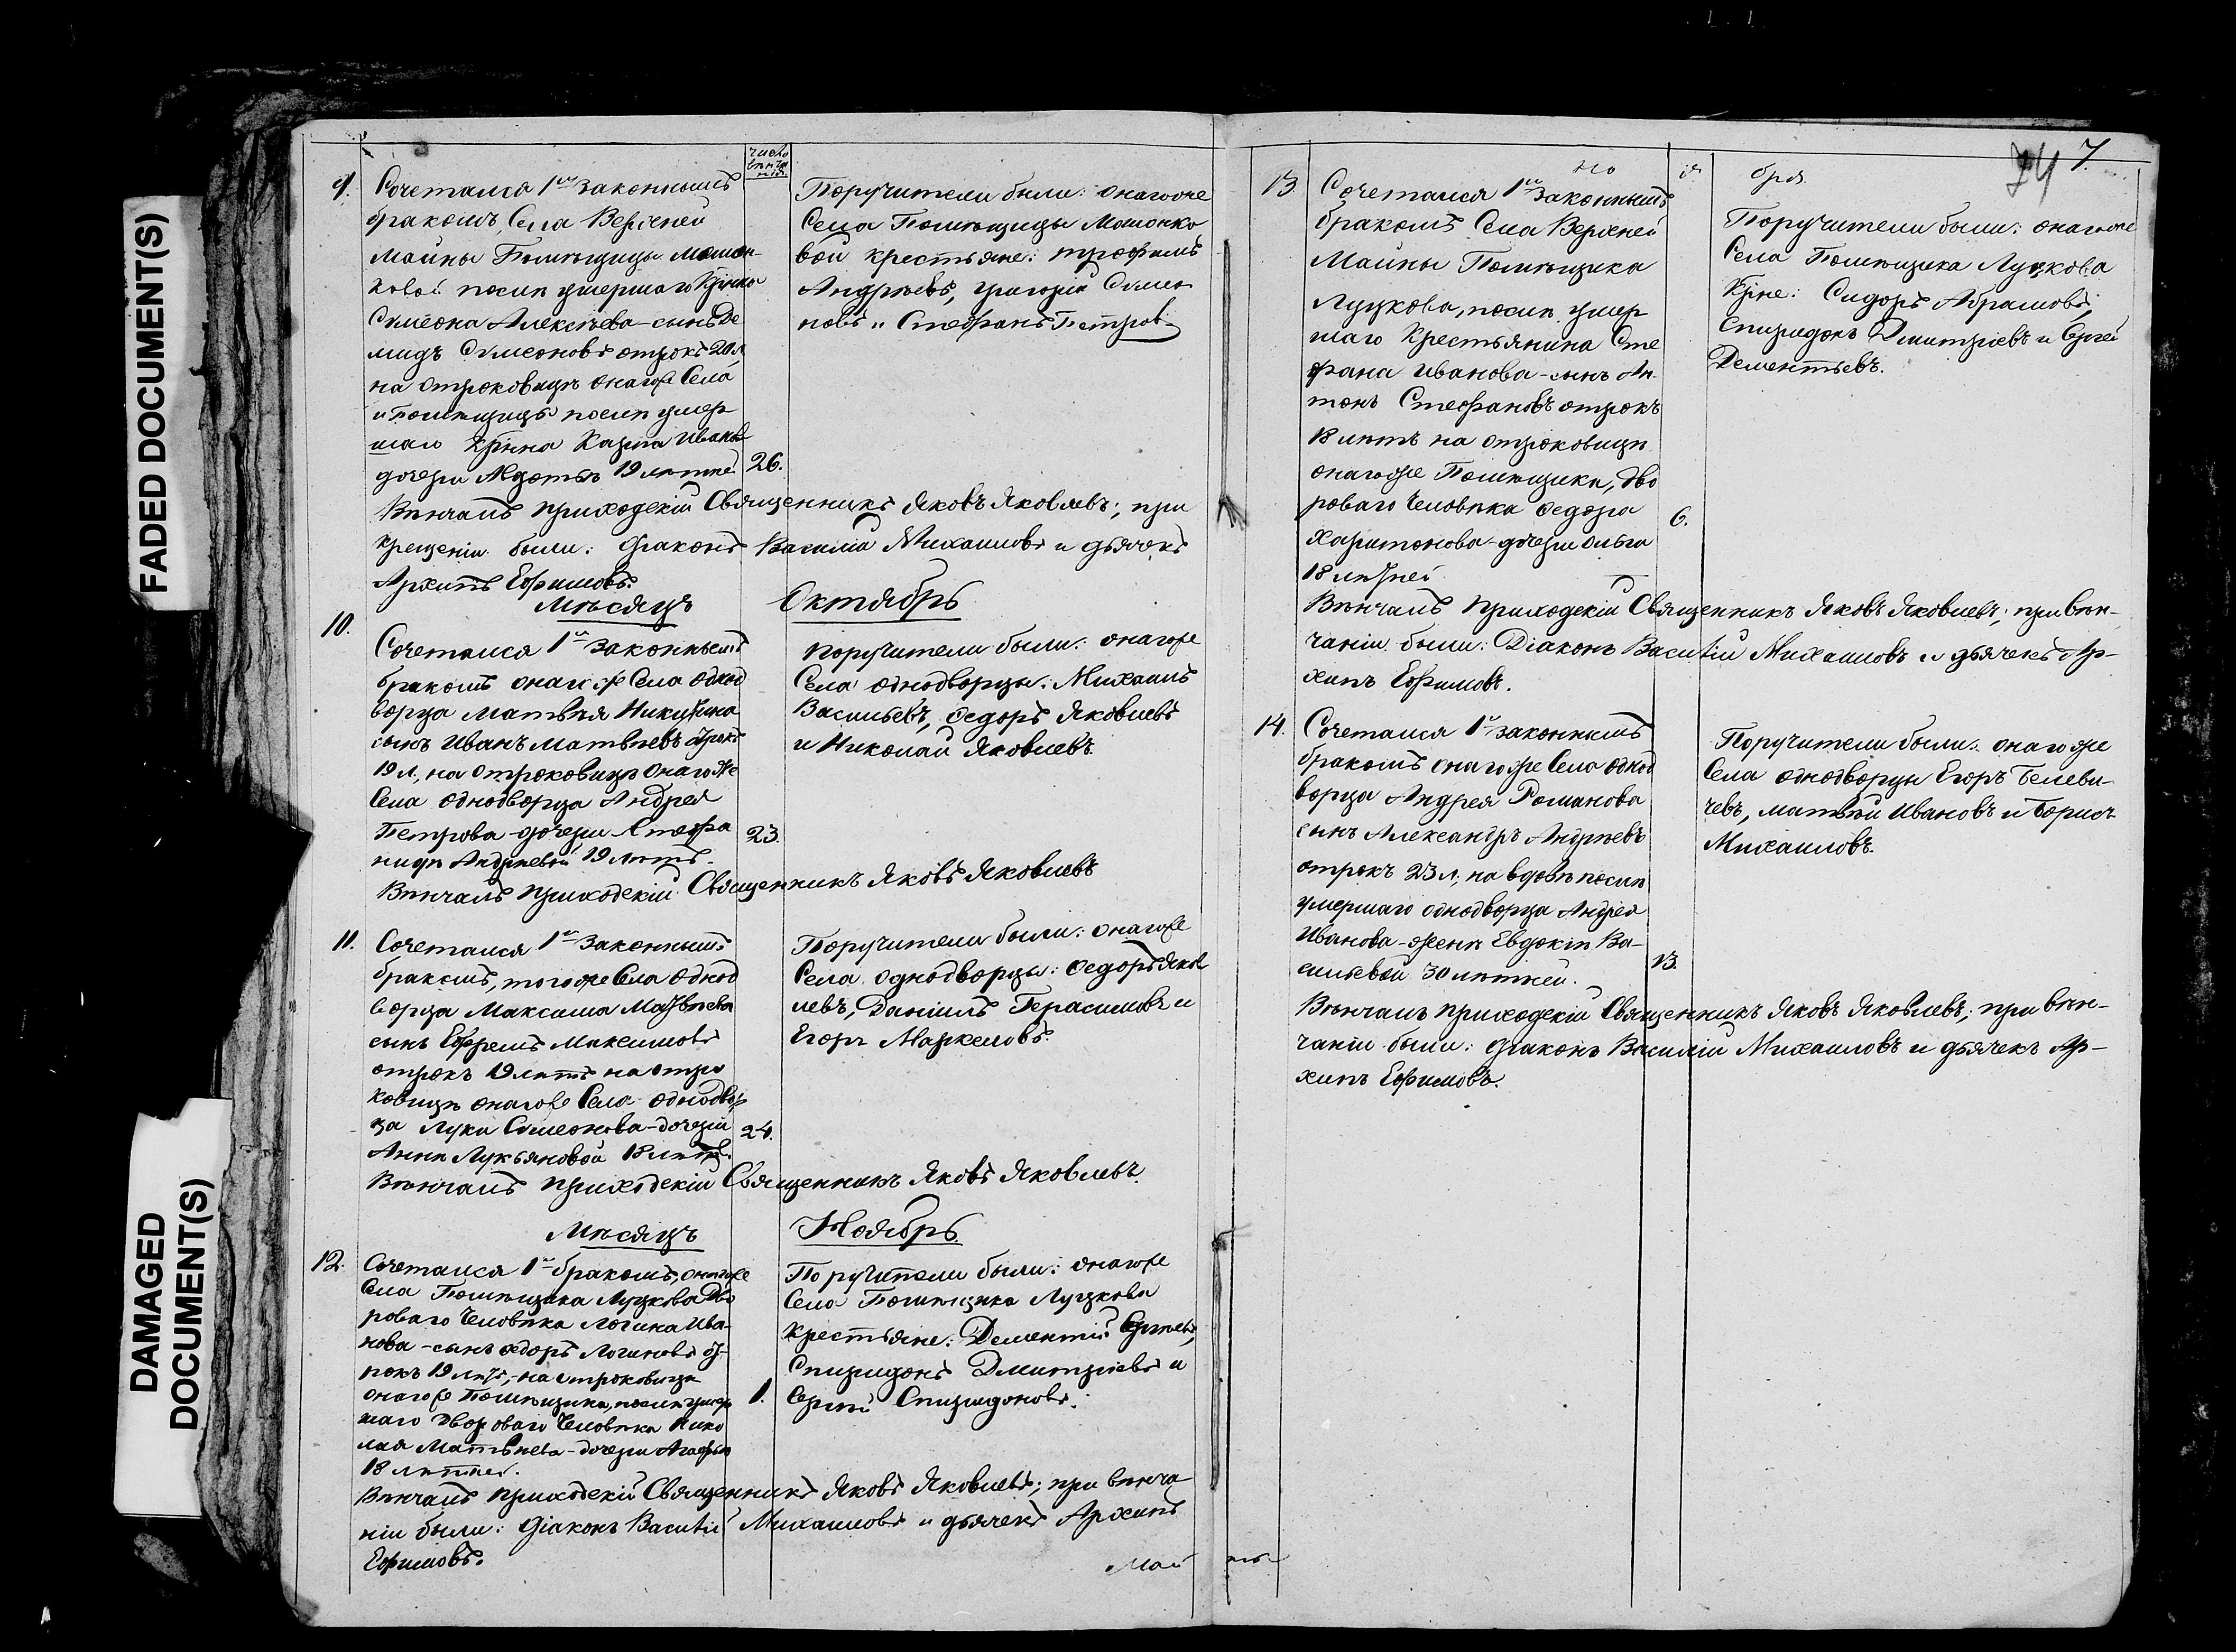 FADED DOCUMENT(S)
DAMAGED
DOCUMENT(S)
число
9.
Сочетался 1м законнымъ
бракомъ, Села Верхней
Майны Помѣщицы Мошон-
ковой послѣ умершаго Крѣна
Сѵмеона Алексѣева - сынъ Де
мидъ Сѵмеоновъ отрокъ 20 л
на отроковицѣ онагоже Села
и Помѣщицы послѣ умер
шаго Крѣна Карпа Иванова
дочери Авдотьѣ 19 лѣтней
26.
Поручители были: онагоже
Села Помѣщицы Мошонко
вой крестьяне: Трофимъ
Андрѣевъ, Григорій Сѵмео
новъ и Стефанъ Петровъ
Вѣнчалъ приходскій Священникъ Яковъ Яковлевъ; при
крещеніи были: Діаконъ Василій Михаиловъ и дьячекъ
Архипъ Ефимовъ.
Мѣсяцъ Октябрь
10.
Сочетался 1м законнымъ
бракомъ онагоже Села однод
ворца Матвѣя Никитина
сынъ Иванъ Матвѣевъ отрокъ
19 л, на отроковицѣ онагоже
Села однодворца Андрея
Петрова - дочери Стефа
нидѣ Андрѣевой 19 лѣтъ.
23.
Поручители были: онагоже
Села однодворцы: Михаилъ
Васильевъ, Ѳедоръ Яковлевъ
и Николай Яковлевъ
Вѣнчалъ приходскій Священникъ Яковъ Яковлевъ
11.
Сочетался 1м законнымъ
бракомъ, тогоже Села однод
ворца Максима Матвѣева
сынъ Ефремъ Максимовъ
отрокъ 19 лѣтъ на отро
ковицѣ онагоже Села однодвор
ца Луки Сѵмеонова - дочери
Аннѣ Лукьяновой 18 лѣтъ.
24.
Поручители были: онагоже
Села однодворцы: Ѳедоръ Яков
левъ, Даніилъ Герасимовъ и
Егоръ Маркеловъ.
Вѣнчалъ приходскій Священникъ Яковъ Яковлевъ.
Мѣсяцъ Ноябрь
12.
Сочетался 1м бракомъ, онагоже
Села Помѣщика Луцкова дво
роваго человѣка Логина Ива-
нова - сынъ Ѳедоръ Логиновъ от-
рокъ 19 лѣтъ, на отроковицѣ
онагоже Помѣщика, послѣ умер
шаго дворонаго человѣка Нико
лая Матвѣева - дочери Агафьѣ
18 лѣтней.
1.
Поручители были: онагоже
Села Помѣщика Луцкова
крестьяне: Дементій Сергѣевъ,
Спиридонъ Дмитріевъ и
Сергѣй Спиридоновъ.
Вѣнчалъ приходскій Священникъ Яковъ Яковлевъ; при вѣнча
ніи были: Діаконъ Василій Михаиловъ и дьячекъ Архипъ
Ефимовъ.
Май
но я бря
74 7.
13.
Сочетался 1м законнымъ
бракомъ Села Верхней
Майны Помѣщика
Луцкова, послѣ умер
шаго Крестьянина Сте
фана Иванова - сынъ Ан
тонъ Стефановъ отрокъ
18 лѣтъ на отроковицѣ
онагоже Помѣщика, дво
роваго человѣка Ѳедора
Харитонова - дочери Ольга
18 лѣтней
6.
Поручители были: онагоже
Села Помѣщика Луцкова
Крѣне: Сидоръ Абрамовъ,
Спиридонъ Дмитріевъ и Сергѣй
Дементьевъ.
Вѣнчалъ приходскій Священникъ Яковъ Яковлевъ; при вѣн-
чаніи были: Діаконъ Василій Михаиловъ и дьячекъ Ар-
хипъ Ефимовъ.
14.
Сочетался 1м законнымъ
бракомъ онагоже Села однод
ворца Андрея Романова
сынъ Александръ Андрѣевъ
отрокъ 23 л, на вдовѣ послѣ
умершаго однодворца Андрея
Иванова - женѣ Евдокіи Ва-
сильевой 30 лѣтней.
13.
Поручители были: онагоже
Села однодворцы Егоръ Белеви-
чевъ, Матвѣй Ивановъ и Борисъ
Михаиловъ.
Вѣнчалъ приходскій Священникъ Яковъ Яковлевъ; при вѣн-
чаніи были: Діаконъ Василій Михаиловъ и дьячекъ Ар-
хипъ Ефимовъ.